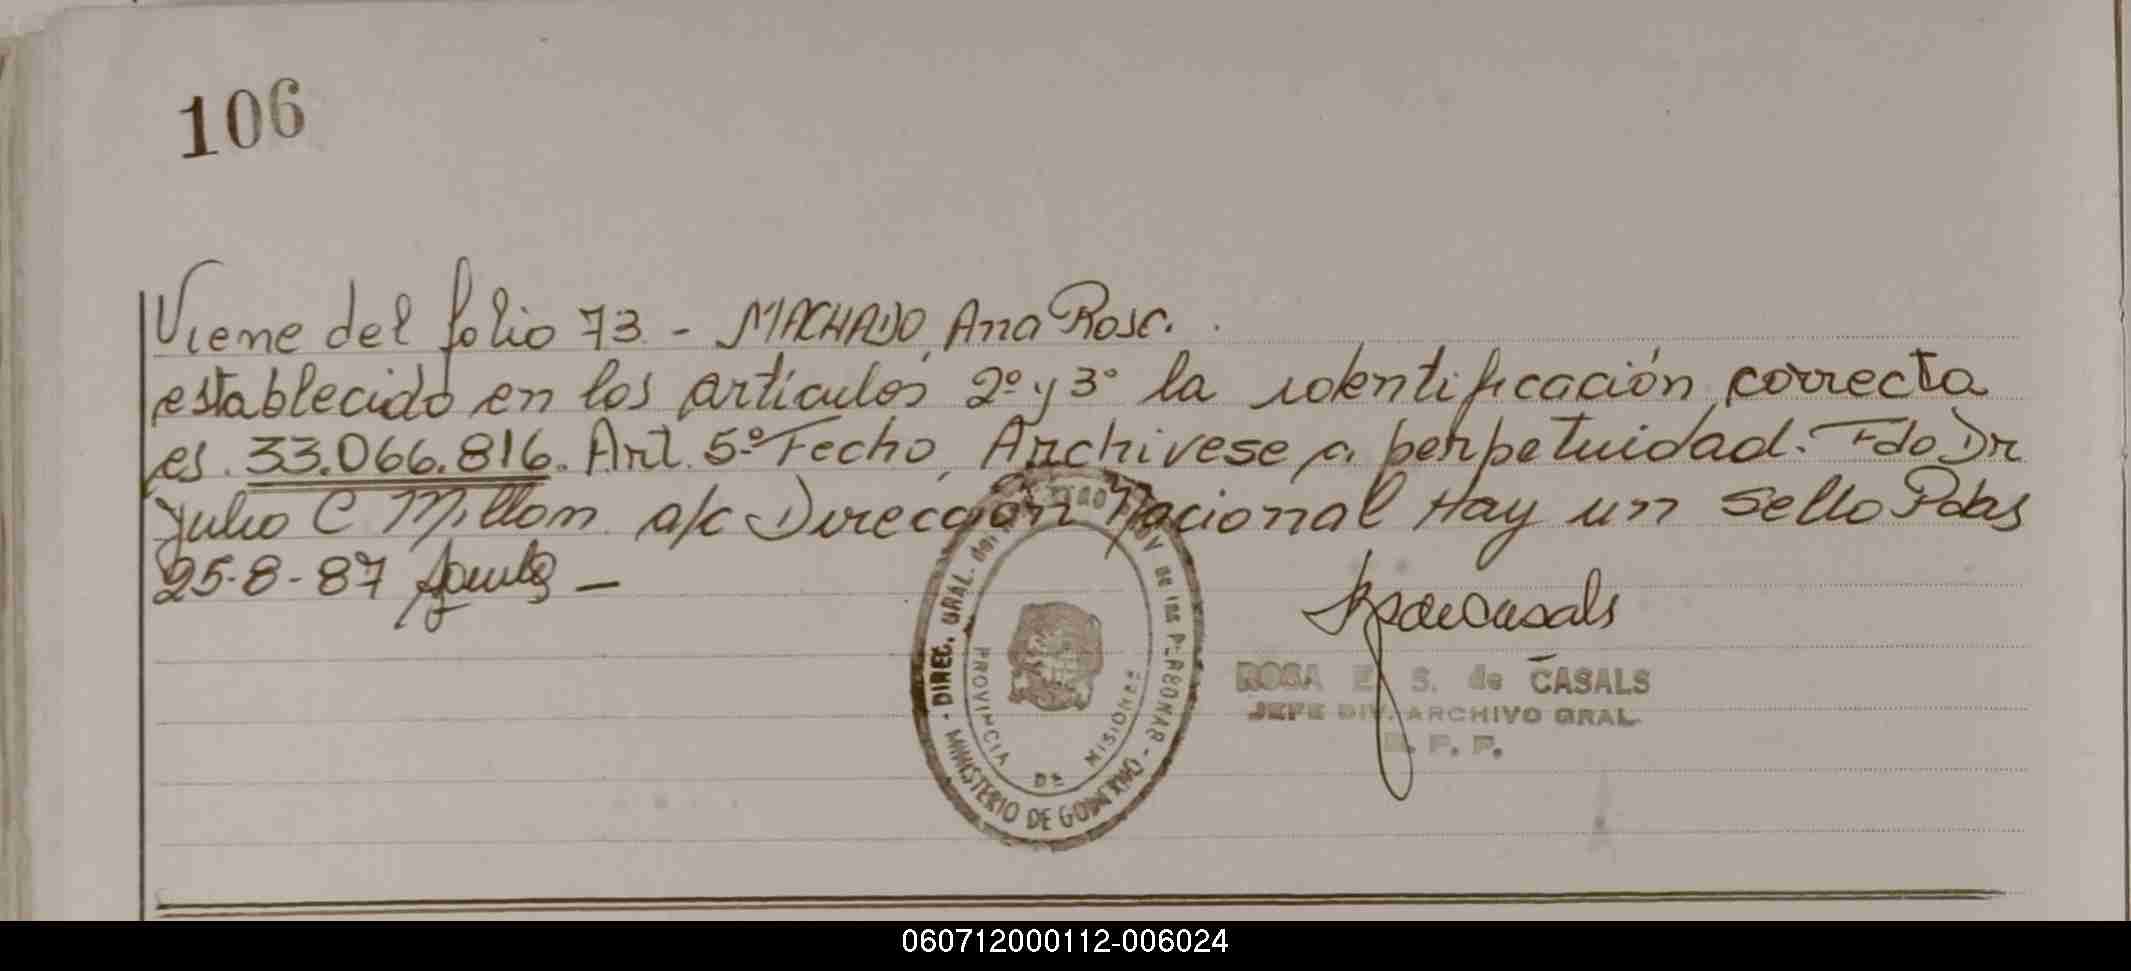 106
Viene del folio 73 - MACHADO, Ana Rosa.
establecido en los artículos 2º y 3º la identificación correcta
es 33.066.816. Art. 5º Fecho, Archívese a perpetuidad. Fdo Dr
Julio C Millon a/c Dirección Nacional Hay un sello Pdas
25-8-87
DIREC. GRAL. del REG. PROV. de las PERSONAS - MINISTERIO DE GOBIERNO -
PROVINCIA DE MISIONES
ROSA E. S. de CASALS
JEFE DIV. ARCHIVO GRAL.
R. P. P.
060712000112-006024